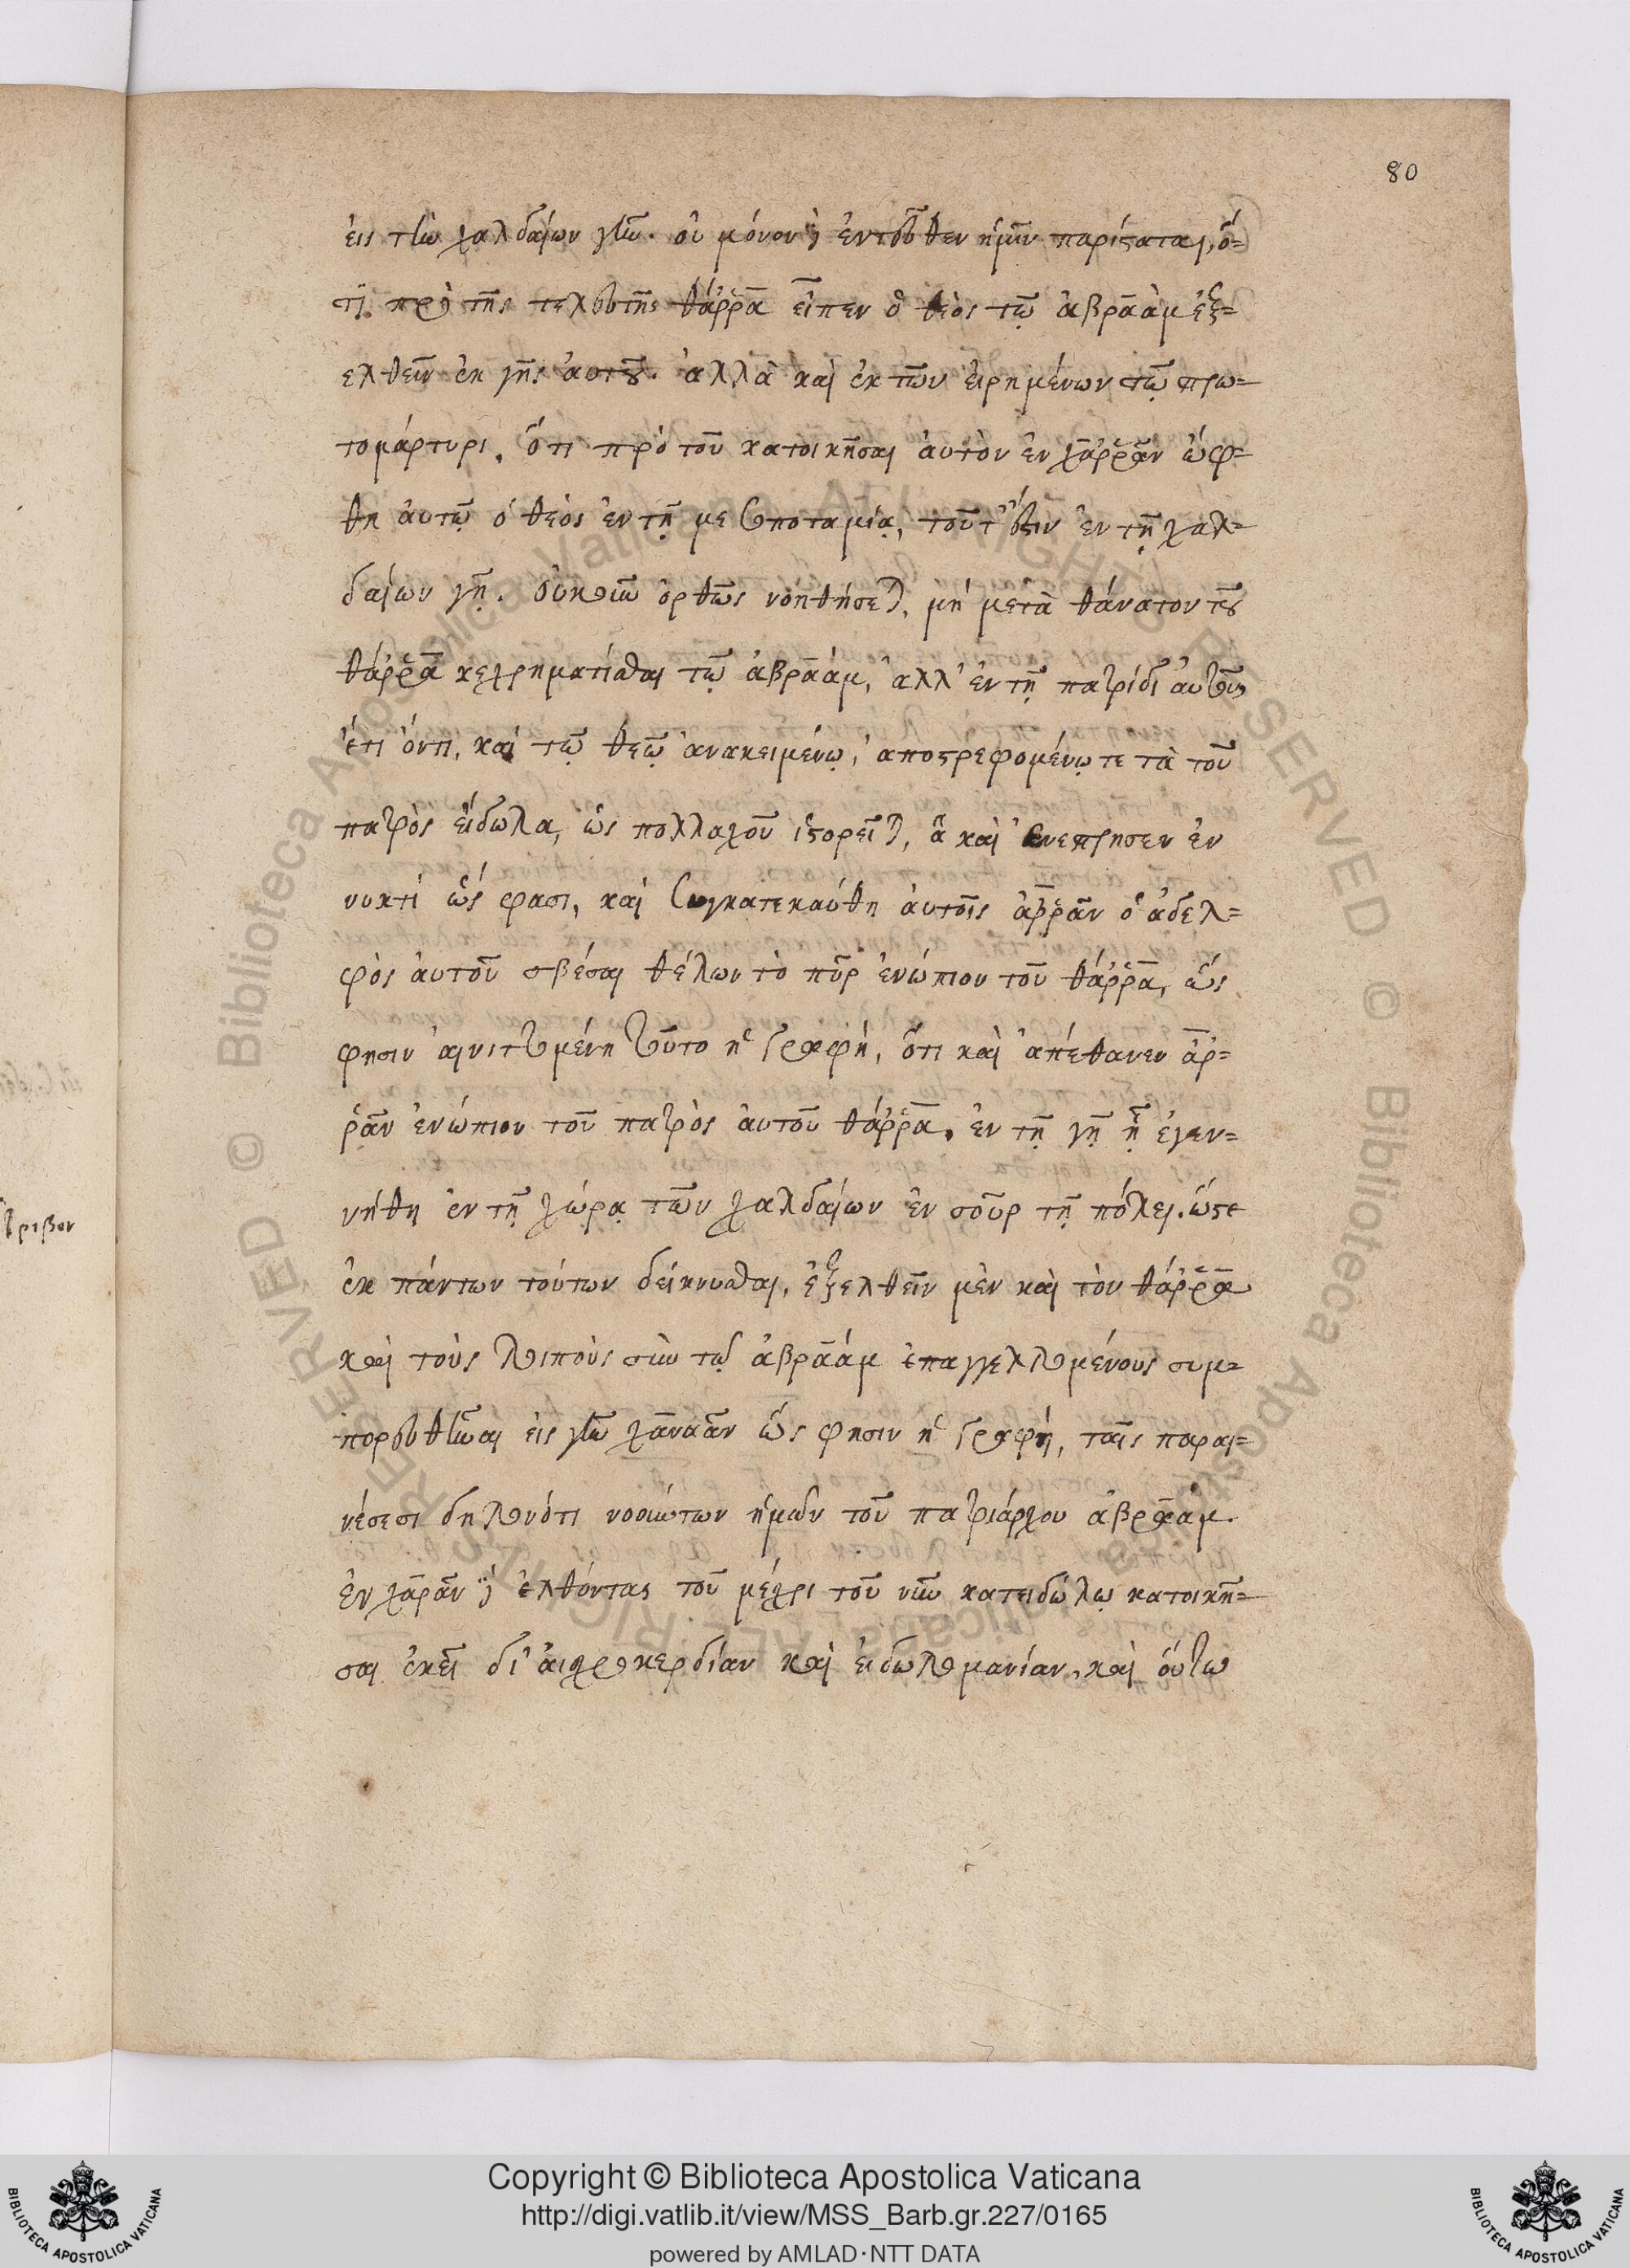 80
εἰς τὴν χαλδαίων γῆν. οὐ μόνον δὲ ἐντεῦθεν ἡμῖν παρίσταται, ὅ-
τι πρὸ τῆς τελευτῆς θάῤῥα εἶπεν ὁ θεὸς τῷ ἀβραὰμ ἐξ-
ελθεῖν ἐκ γῆς ἀυτοῦ. ἀλλὰ καὶ ἐκ τῶν εἰρημένων τῷ πρω-
τομάρτυρι, ὅτι πρὸ τοῦ κατοικῆσαι ἀυτὸν ἐν χαῤῥὰν ὤφ-
θη ἀυτῷ ὁ θεὸς ἐν τῇ μεσοποταμίᾳ, τοῦτ' ἔστιν ἐν τῇ χαλ-
δαίων γῇ. οὐκοῦν ὀρθῶς νοηθήσεται, μή μετὰ θάνατον τοῦ
θάῤῥα κεχρηματίσθαι τῷ ἀβραάμ, ἀλλ' ἐν τῇ πατρίδι αὐτοῦ
ἔτι ὄντι, καὶ τῷ θεῷ ἀνακειμένῳ, ἀποστρεφομένῳ τε τὰ τοῦ
πατρὸς εἴδωλα, ὡς πολλαχοῦ ἱστορεῖται, ἃ καὶ ἐνέπρησεν ἐν
νυκτί ὥς φασι, καὶ συγκατεκαύθη ἀυτοῖς ἀῤῥὰν ὁ ἀδελ-
φὸς ἀυτοῦ σβέσαι θέλων τὸ πῦρ ἐνώπιον τοῦ θάῤῥα, ὥς
φησιν αἰνιττομένη τοῦτο ἡ γραφή, ὅτι καὶ ἀπέθανεν ἀῤ-
ῥὰν ἐνώπιον τοῦ πατρὸς ἀυτοῦ θάῤῥα, ἐν τῇ γῇ ᾗ ἐγεν-
νήθη ἐν τῇ χώρᾳ τῶν χαλδαίων ἐν σοῦρ τῇ πόλει. ὥστε
ἐκ πάντων τούτων δείκνυσθαι, ἐξελθεῖν μὲν καὶ τὸν θάῤῥα
καὶ τοὺς λοιποὺς σὺν τῷ ἀβραάμ ἐπαγγελλομένους συμ-
πορευθῆναι εἰς γῆν χαναὰν ὥς φησιν ἡ γραφή, ταῖς παραι-
νέσεσι δηλονότι τοῦ πατριάρχου ἀβραάμ.
ἐν χαρὰν δὲ ἐλθόντας τοῦ μέχρι τοῦ νῦν κατειδώλῳ κατοικῆ-
σαι ἐκεῖ δι' ἀισχροκερδίαν καὶ εἰδωλομανίαν, καὶ οὕτω
Copyright © Biblioteca Apostolica Vaticana
http://digi.vatlib.it/view/MSS_Barb.gr.227/0165
powered by AMLAD·NTT DATA